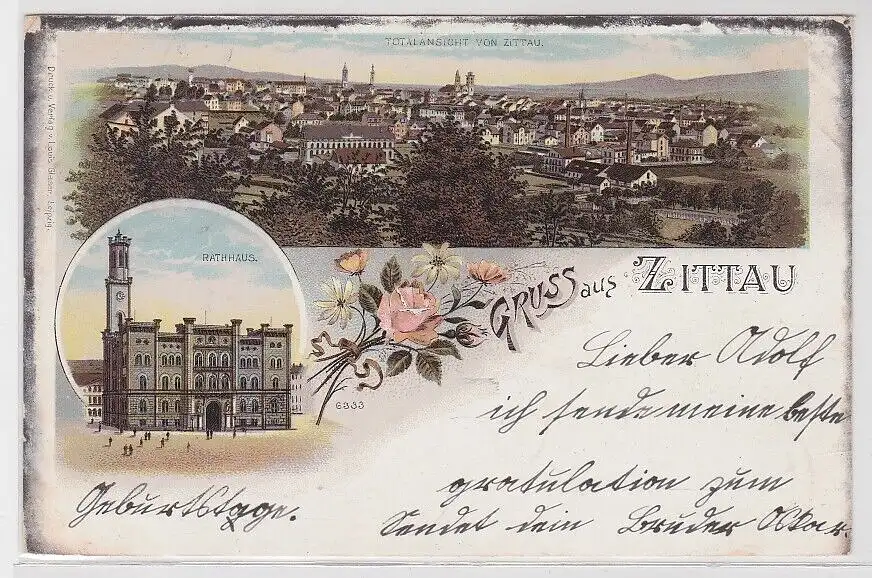 TOTALANSICHT VON ZITTAU.
Druck u. Verlag v. Louis Glaser, Leipzig.
RATHHAUS.
GRUSS aus ZITTAU
6933
Lieber Adolf
ich sende meine beste
gratulation zum
Geburtstage.
Sendet dein Bruder Oskar.